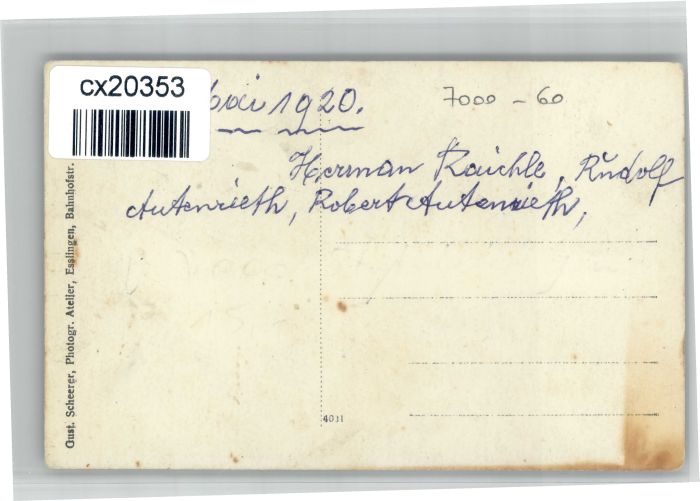 cx20353
1920.
7000 - 60
Herman Raichle, Rŭdolf
Autenrieth, Robert Autenrieth,
Gust. Scheerer, Photogr. Atelier, Esslingen, Bahnhofstr.
4011